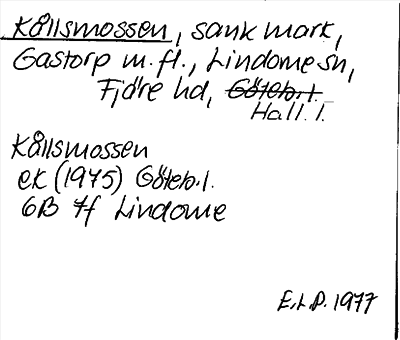 Källsmossen, sank mark,
Gastorp m. fl., Lindome sn,
Fjäre hd, Göteb. l.
Hall. l.
Källsmossen
ek (1975) Göteb. l.
6B 7f Lindome
E.L.P. 1977